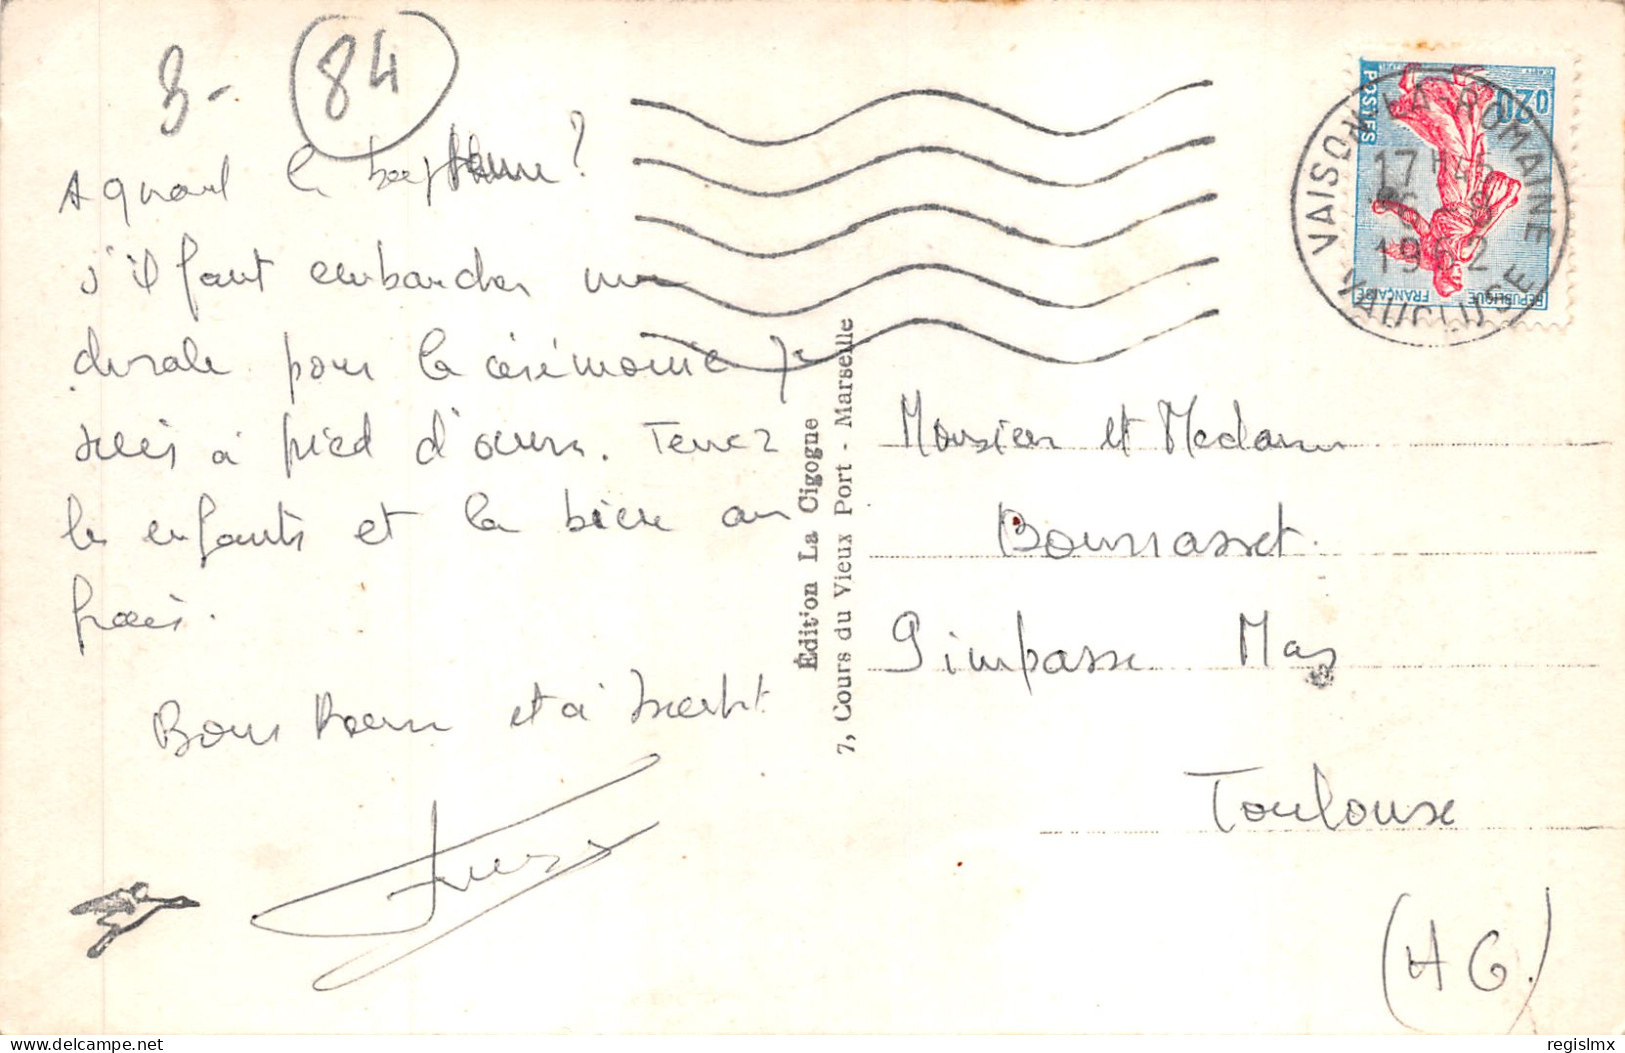 3-
84
A quand le baptême ?
s'il faut embaucher une
chorale pour la cérémonie je
suis à pied d'œuvre. Tenez
les enfants et la bière au
frais.
Bons                 et à bientôt
Édition La Cigogne
7, Cours du Vieux Port - Marseille
VAISON-LA-ROMAINE
17H45
1962
VAUCLUSE
0,20
POSTES
RÉPUBLIQUE FRANÇAISE
Monsieur et Madame
Bourrasset
9 impasse Mas
Toulouse
(HG.)
delcampe.net
regislmx